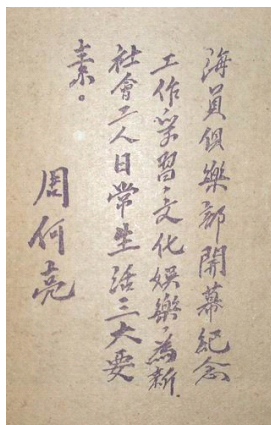 海員俱樂部開幕紀念
工作、學習、文化娛樂，為新
社會工人日常生活三大要
素。
周何亮